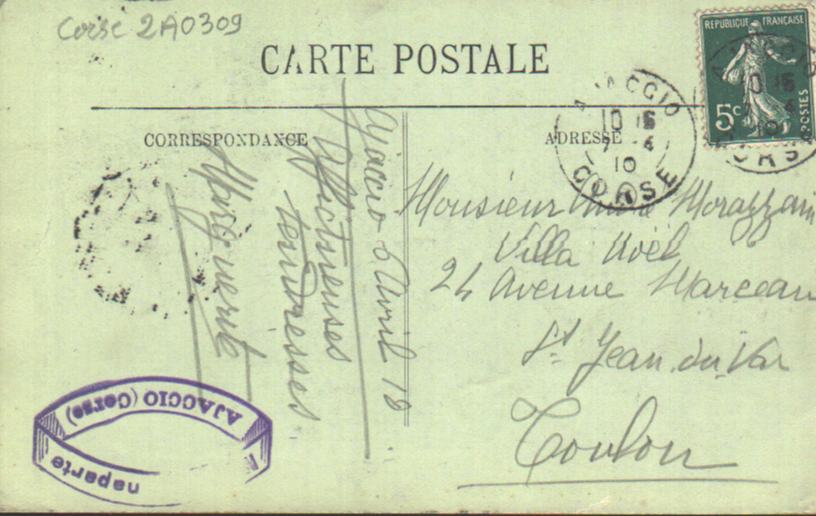 Corse 2A0309
CARTE POSTALE
RÉPUBLIQUE FRANÇAISE
5c
POSTES
CORRESPONDANCE
ADRESSE
AJACCIO
10 15
7 - 4
10
CORSE
Ajaccio 6 Avril 10
Affectueuses
tendresses
Marguerite
Monsieur Morazzani
Villa Noël
24 Avenue Marceau
St Jean du Var
Toulon
AJACCIO (Corse)
naparte